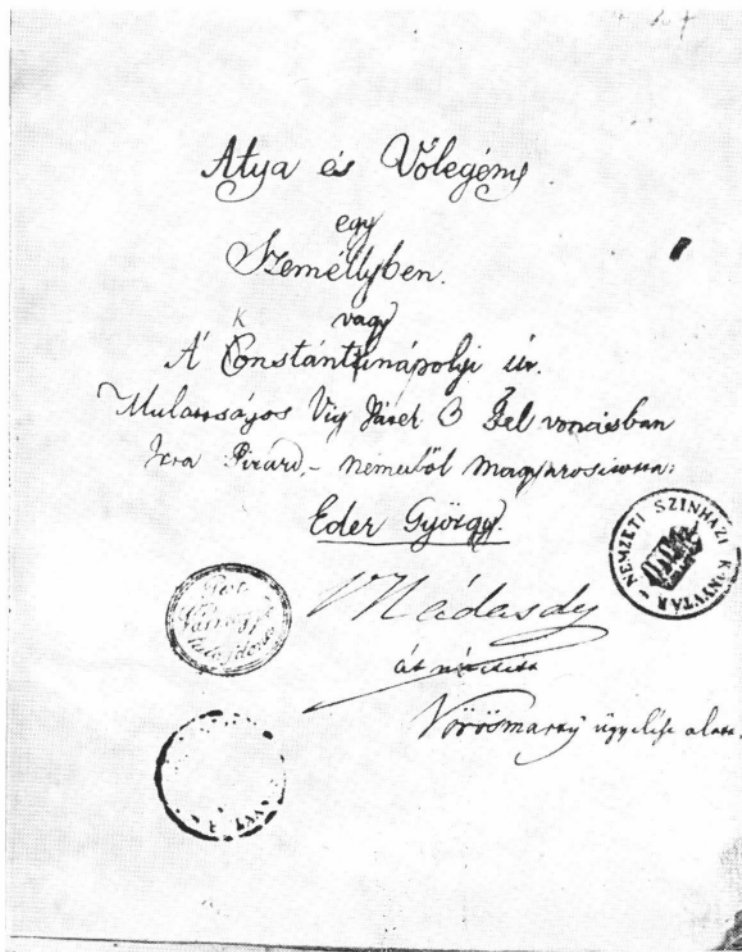 Atya és Vőlegény
egy
Személlyben.
K vagy
A' Constántinápolyi úr.
Mulattságos Víg Játék 3 Fel vonásban
Irta Pirard, – németből magyarosította:
Eder György.
NEMZETI SZINHÁZI KÖNYVTÁR
Nádasdy
át nézetett
Vörösmarty ügyelése alatt.